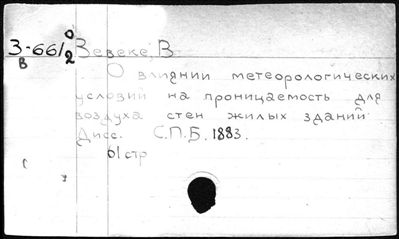 З-66/0 2 Зевеке, В.
В
О влиянии метеорологических
условий на проницаемость для
воздуха стен жилых зданий
Дисс. С.П.Б. 1883.
61 стр